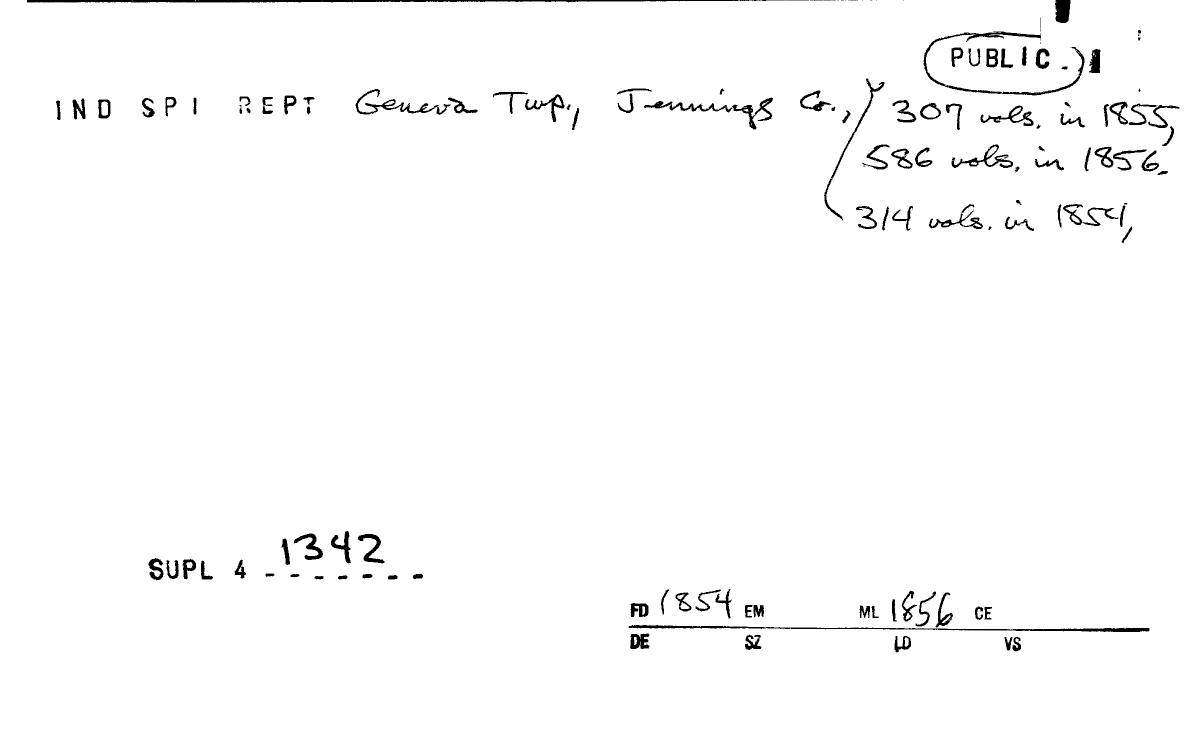 PUBLIC.
IND SPI REPT Geneva Twp., Jennings Co., 307 vols. in 1855,
586 vols. in 1856.
314 vols. in 1854,
SUPL 4 1342
FD 1854 EM ML 1856 CE
DE SZ LD VS